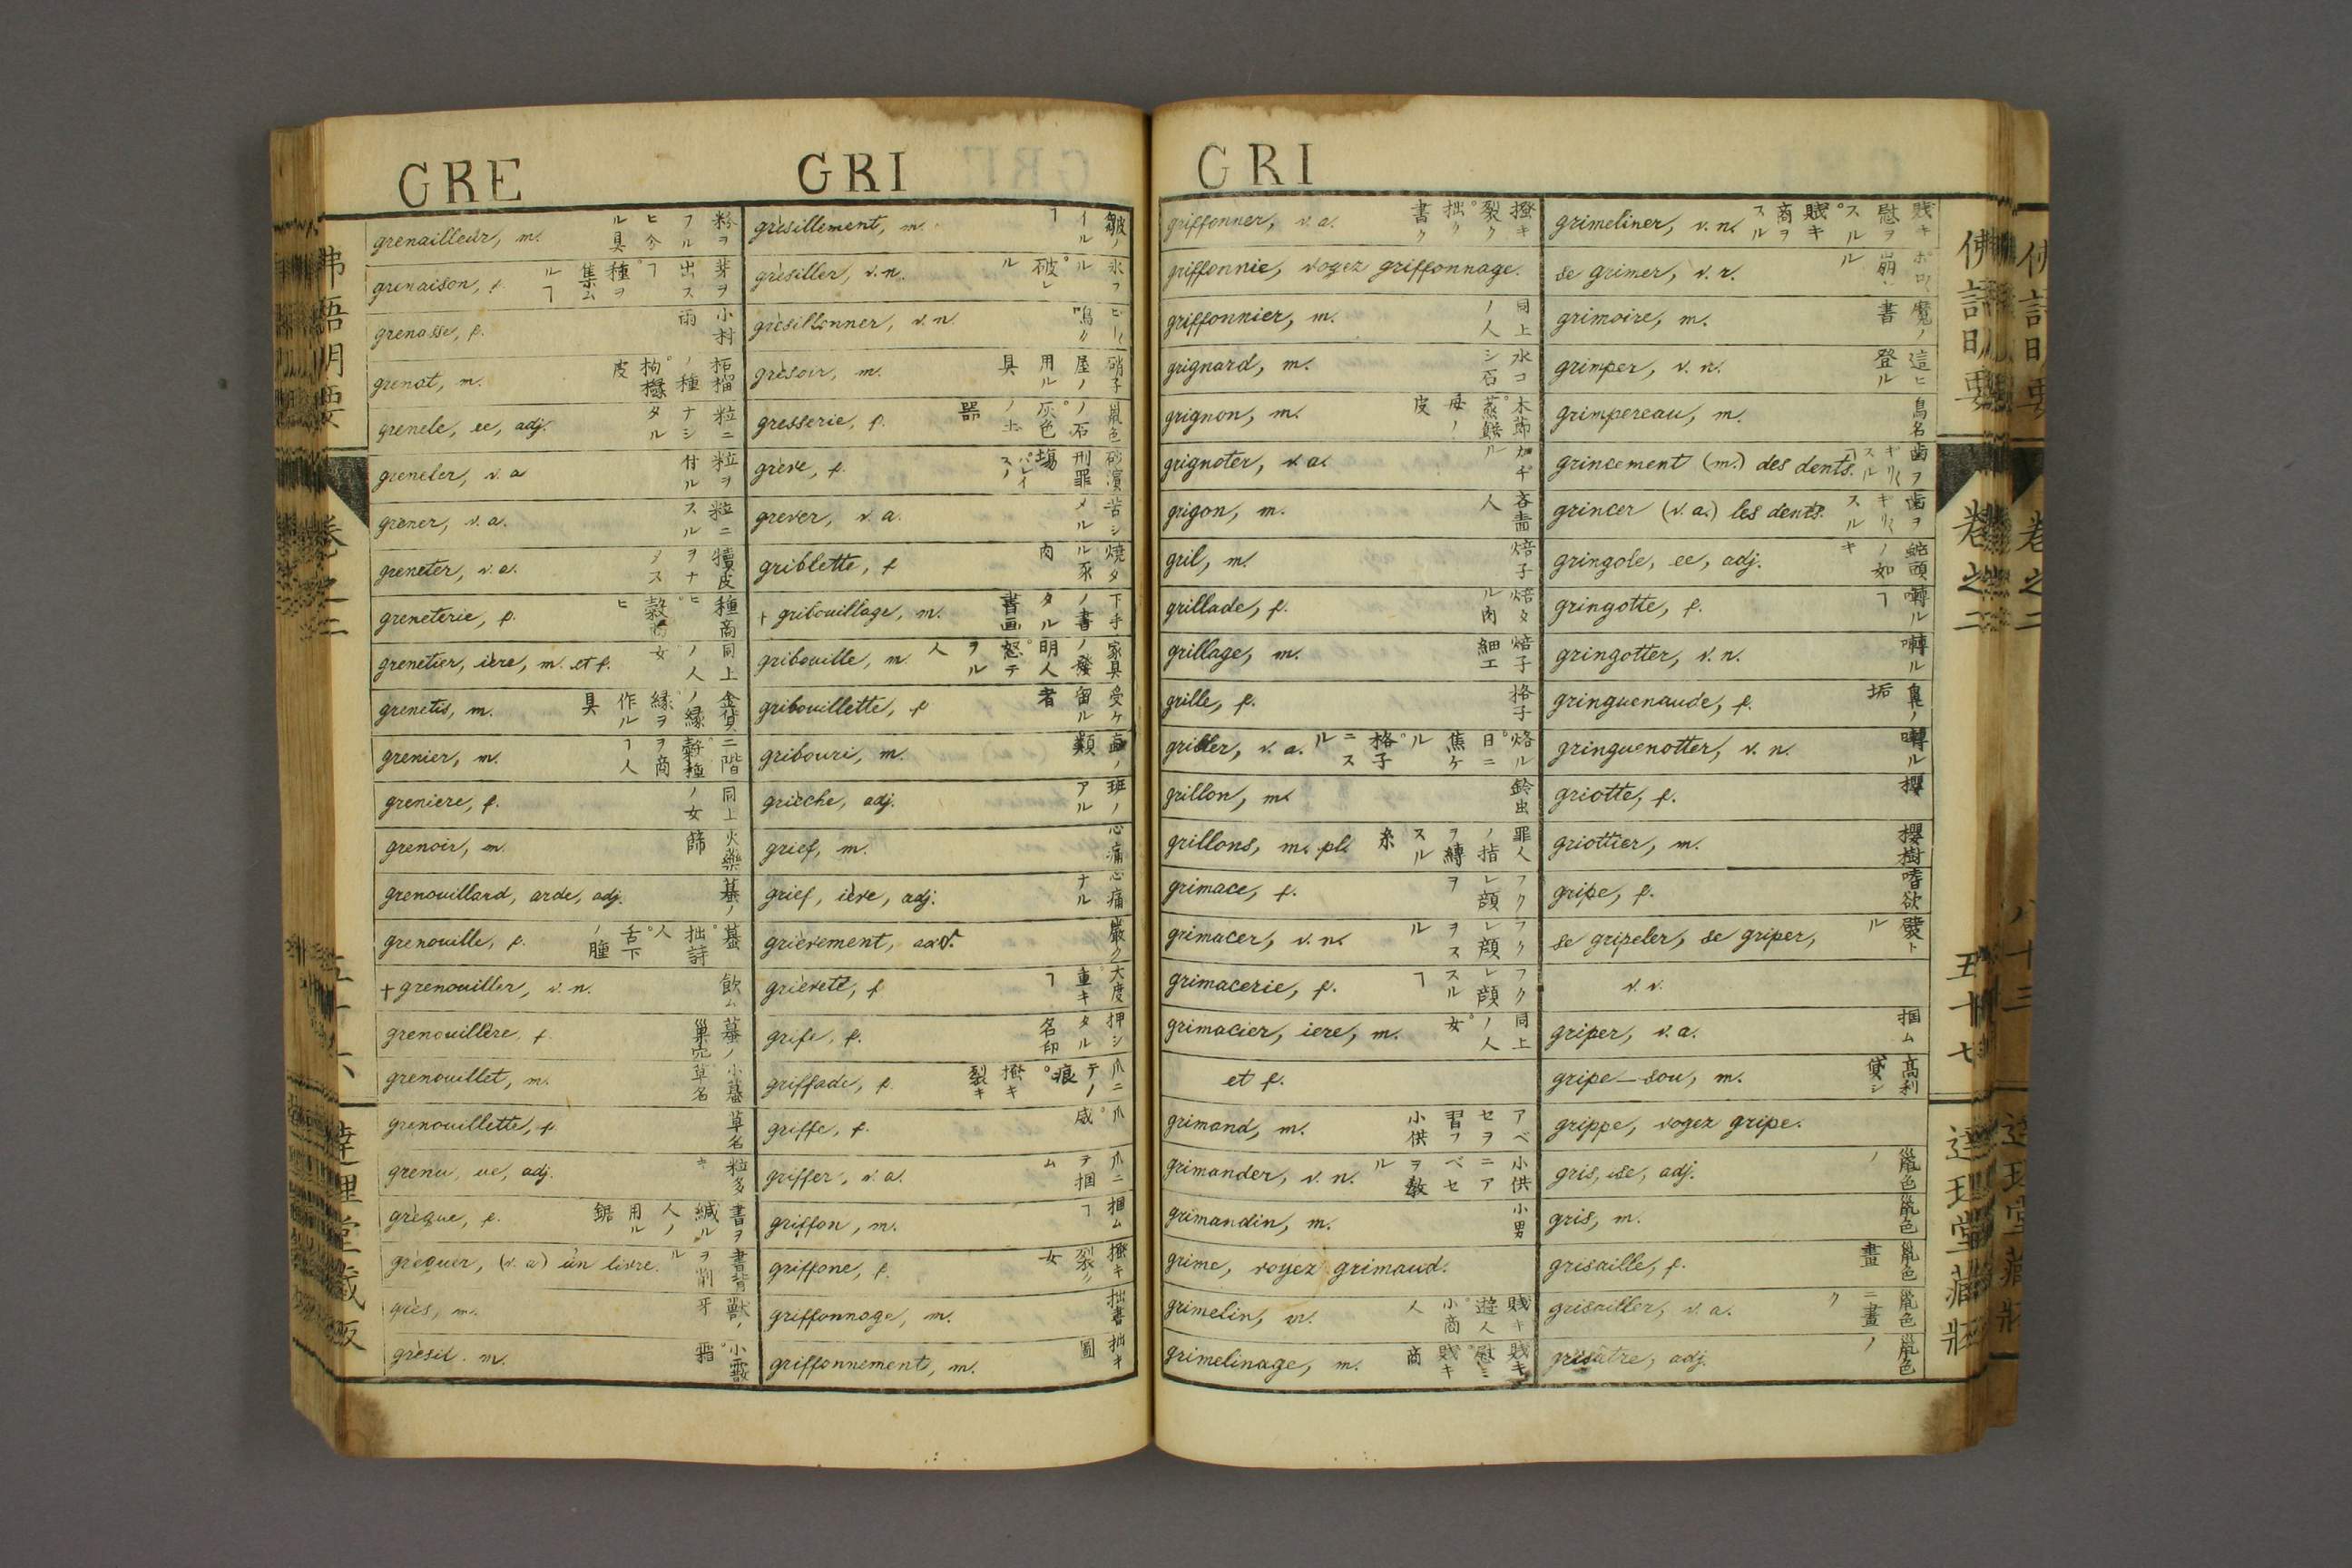 GRE
GRI
grenailleur, m. 粉ヲフルヒ分ル具
grenaison, f. 芽ヲ出スヿ。種ヲ集ムルヿ
grenasse, f. 小村雨
grenat, m. 柘榴ノ種。枸櫞皮
grenele, ee, adj. 粒ニナシタル
greneler, v. a 粒ヲ付ル
grener, v. a. 粒ニスル
greneter, v. a. 犢皮ヲナメス
greneterie, f. 種商ヒ。穀商ヒ
grenetier, ière, m. et f. 同上ノ人 女
grenetis, m. 金貨ノ縁。縁ヲ作ル具
grenier, m. 二階。穀種ヲ商フ人
greniere, f. 同上ノ女
grenoir, m. 火藥篩
grenouillard, arde, adj. 蟇ノ
grenouille, f. 蟇。拙詩人。舌下ノ腫
+ grenouiller, v. n. 飲ム
grenouillère, f. 蟇ノ巢穴
grenouillet, m. 小蟇 草名
grenouillette, f. 草名
grenu, ue, adj. 粒多キ
grèque, f. 書ヲ緘ル人ノ用ル鋸
grèquer, (v. a) un livre. 書背ヲ削ル
grès, m. 獸ノ牙
grèsil. m. 小霰。霜
grèsillement, m. 皺ノイルヿ
grèsiller, v. n. 氷フル。破レル
grèsillonner, v. n.
grèsoir, m. 硝子屋ノ用ル具
gresserie, f. 鼠色ノ石。灰色ノ土器
grève, f. 砂濱 刑罪場
grever, v. a. 苦シメル
griblette, f 燒タル豕肉
+ gribouillage, m. 下手ノ書タル書画
gribouille, m.
gribouillette, f 受ケ留ル者
gribouri, m. 蟲ノ類
grièche, adj. 班ノアル
grief, m. 心痛
grief, ière, adj. 心痛ナル
grièvement, adv. 嚴ク
grièveté, f 大度。重キヿ
grife, f. 押シタル名印
griffade, f. 爪ニテノ痕。搔キ裂キ
griffe, f. 爪。威
griffer, v. a. 爪ニテ掴ム
griffon, m. 掴ムヿ
griffone, f. 搔キ裂ク女
griffonnage, m. 拙書
griffonnement, m. 拙キ圖
GRI
griffonner, v. a. 搔キ裂ク。拙ク書ク
griffonnie, voyez griffonnage.
griffonnier, m. 同上ノ人
grignard, m. 水コシ石
grignon, m.
grignoter, v. a.
grigon, m. 吝嗇人
gril, m. 焙子
grillade, f. 焙タル肉
grillage, m. 焙子細工
grille, f. 格子
griller, v. a. 烙ル。日ニ焦ケル。格子ニスル
grillon, m. 鈴虫
grillons, m. pl. 罪人ノ指ヲ縛スル糸
grimace, f. フクレ顔ヲ
grimacer, v. n. フクレ顔ヲスル
grimacerie, f. フクレ顔スルヿ
grimacier, iere, m. 同上ノ人。女
et f.
grimand, m. アベセヲ習フ小供
grimander, v. n. 小供ニアベセヲ教ル
grimandin, m. 小男
grime, voyez grimaud.
grimelin, m. 賎キ遊人。小商人
grimelinage, m. 賎キ慰ミ。賎キ商
grimeliner, v. n. 賎キ慰ヲスル。賎キ商ヲスル
se grimer, v. r.
grimoire, m. 魔ノ書
grimper, v. n. 這ヒ登ル
grimpereau, m. 鳥名
grincement (m.) des dents. 歯ヲギリ〱スルヿ
grincer (v. a.) les dents. 歯ヲギリ〱スル
gringole, ee, adj. 蛇頭ノ如キ
gringotte, f. 囀ルヿ
gringotter, v. n. 囀ル
gringuenaude, f. 鼻ノ垢
gringuenotter, v. n. 囀ル
griotte, f. 櫻
griottier, m. 櫻樹
gripe, f. 嗜欲
se gripeler, se griper,
v. r.
griper, v. a. 掴ム
gripe—sou, m. 高利貸シ
grippe, voyez gripe.
gris, ise, adj. 鼠色ノ
gris, m. 鼠色
grisaille, f. 鼠色畫
grisailler, v. a. 鼠色ニ畫ク
grisâtre, adj. 鼠色ノ
佛語明要 卷之二 五十七 達理堂藏版